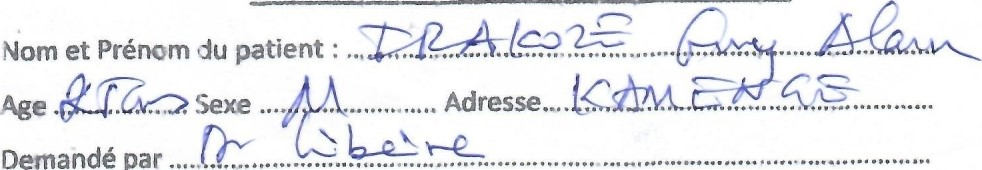 Nom et Prénom du patient : IRAKOZE Guy Alain
Age Sexe M Adresse KAMENGE
Demandé par Dr